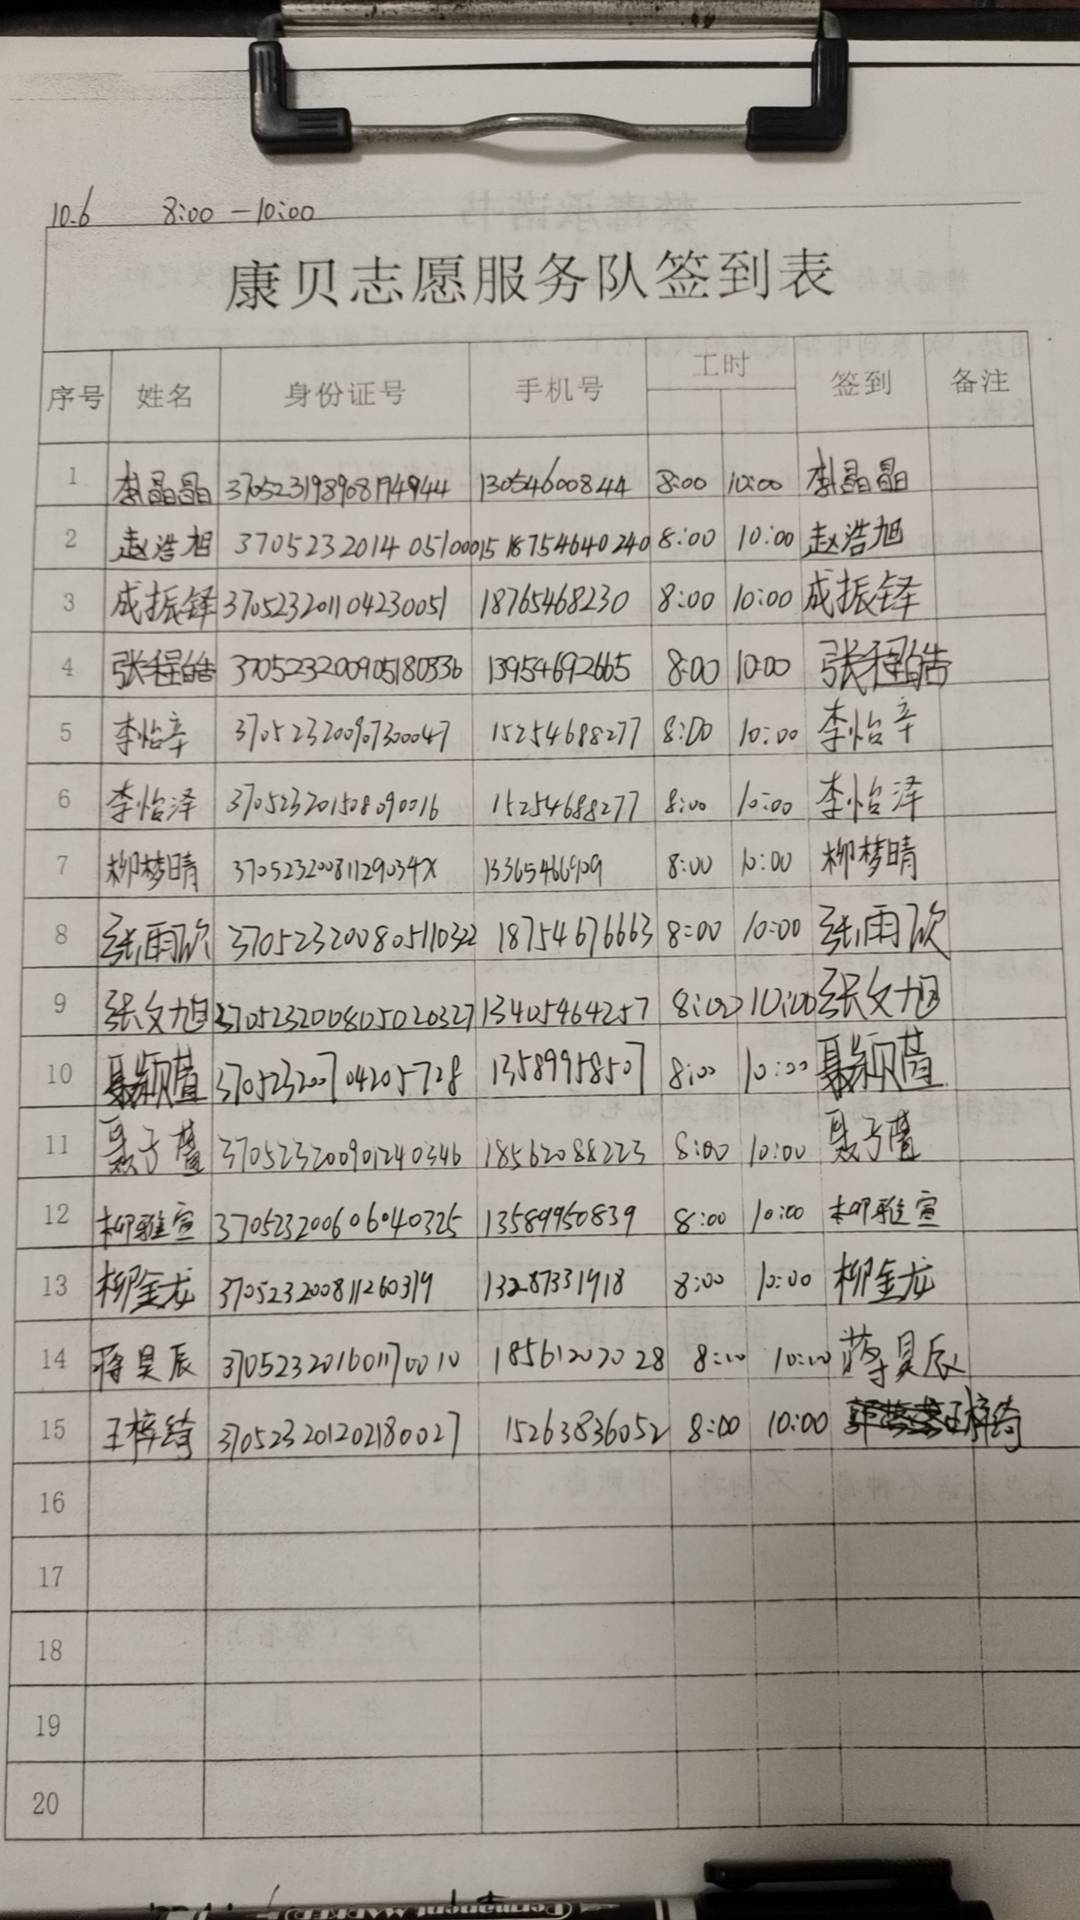 10.6 8:00 — 10:00
康贝志愿服务队签到表
序号 姓名 身份证号 手机号 工时 签到 备注
1 李晶晶 370523198908194944 13054600844 8:00 10:00 李晶晶
2 赵浩旭 370523201405100015 18754640240 8:00 10:00 赵浩旭
3 成振铎 370523201104230051 18765468230 8:00 10:00 成振铎
4 张程皓 370523200905180336 13954692665 8:00 10:00 张程皓
5 李怡辛 370523200907300047 15254688277 8:00 10:00 李怡辛
6 李怡泽 370523201508090016 15254688277 8:00 10:00 李怡泽
7 柳梦晴 37052320081129034X 13365466909 8:00 10:00 柳梦晴
8 张雨欣 370523200805110322 18754676663 8:00 10:00 张雨欣
9 张文旭 370523200805020327 13405464257 8:00 10:00 张文旭
10 聂颖萱 370523200704205728 13589958507 8:00 10:00 聂颖萱
11 聂子萱 370523200901240346 18562088223 8:00 10:00 聂子萱
12 柳雅宣 370523200606040325 13589950839 8:00 10:00 柳雅宣
13 柳金龙 370523200811260319 13287331918 8:00 10:00 柳金龙
14 蒋昊辰 370523201601170010 18561202028 8:00 10:00 蒋昊辰
15 王梓绮 370523201202180027 15263836052 8:00 10:00 王梓绮
16
17
18
19
20
Permanent MARKER